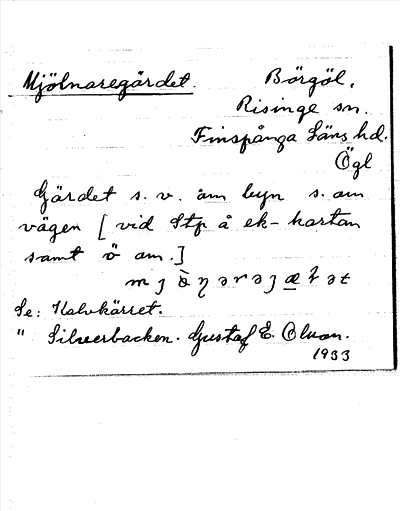 Mjölnaregärdet. Börgöl,
Risinge sn.
Finspånga Läns hd.
Ögl
Gärdet s. v. om byn s. om
vägen [vid Stp å ek-kartan
samt ö om.]
Se: Kalvkärret.
" Silverbacken. Gustaf E. Olsson.
1933